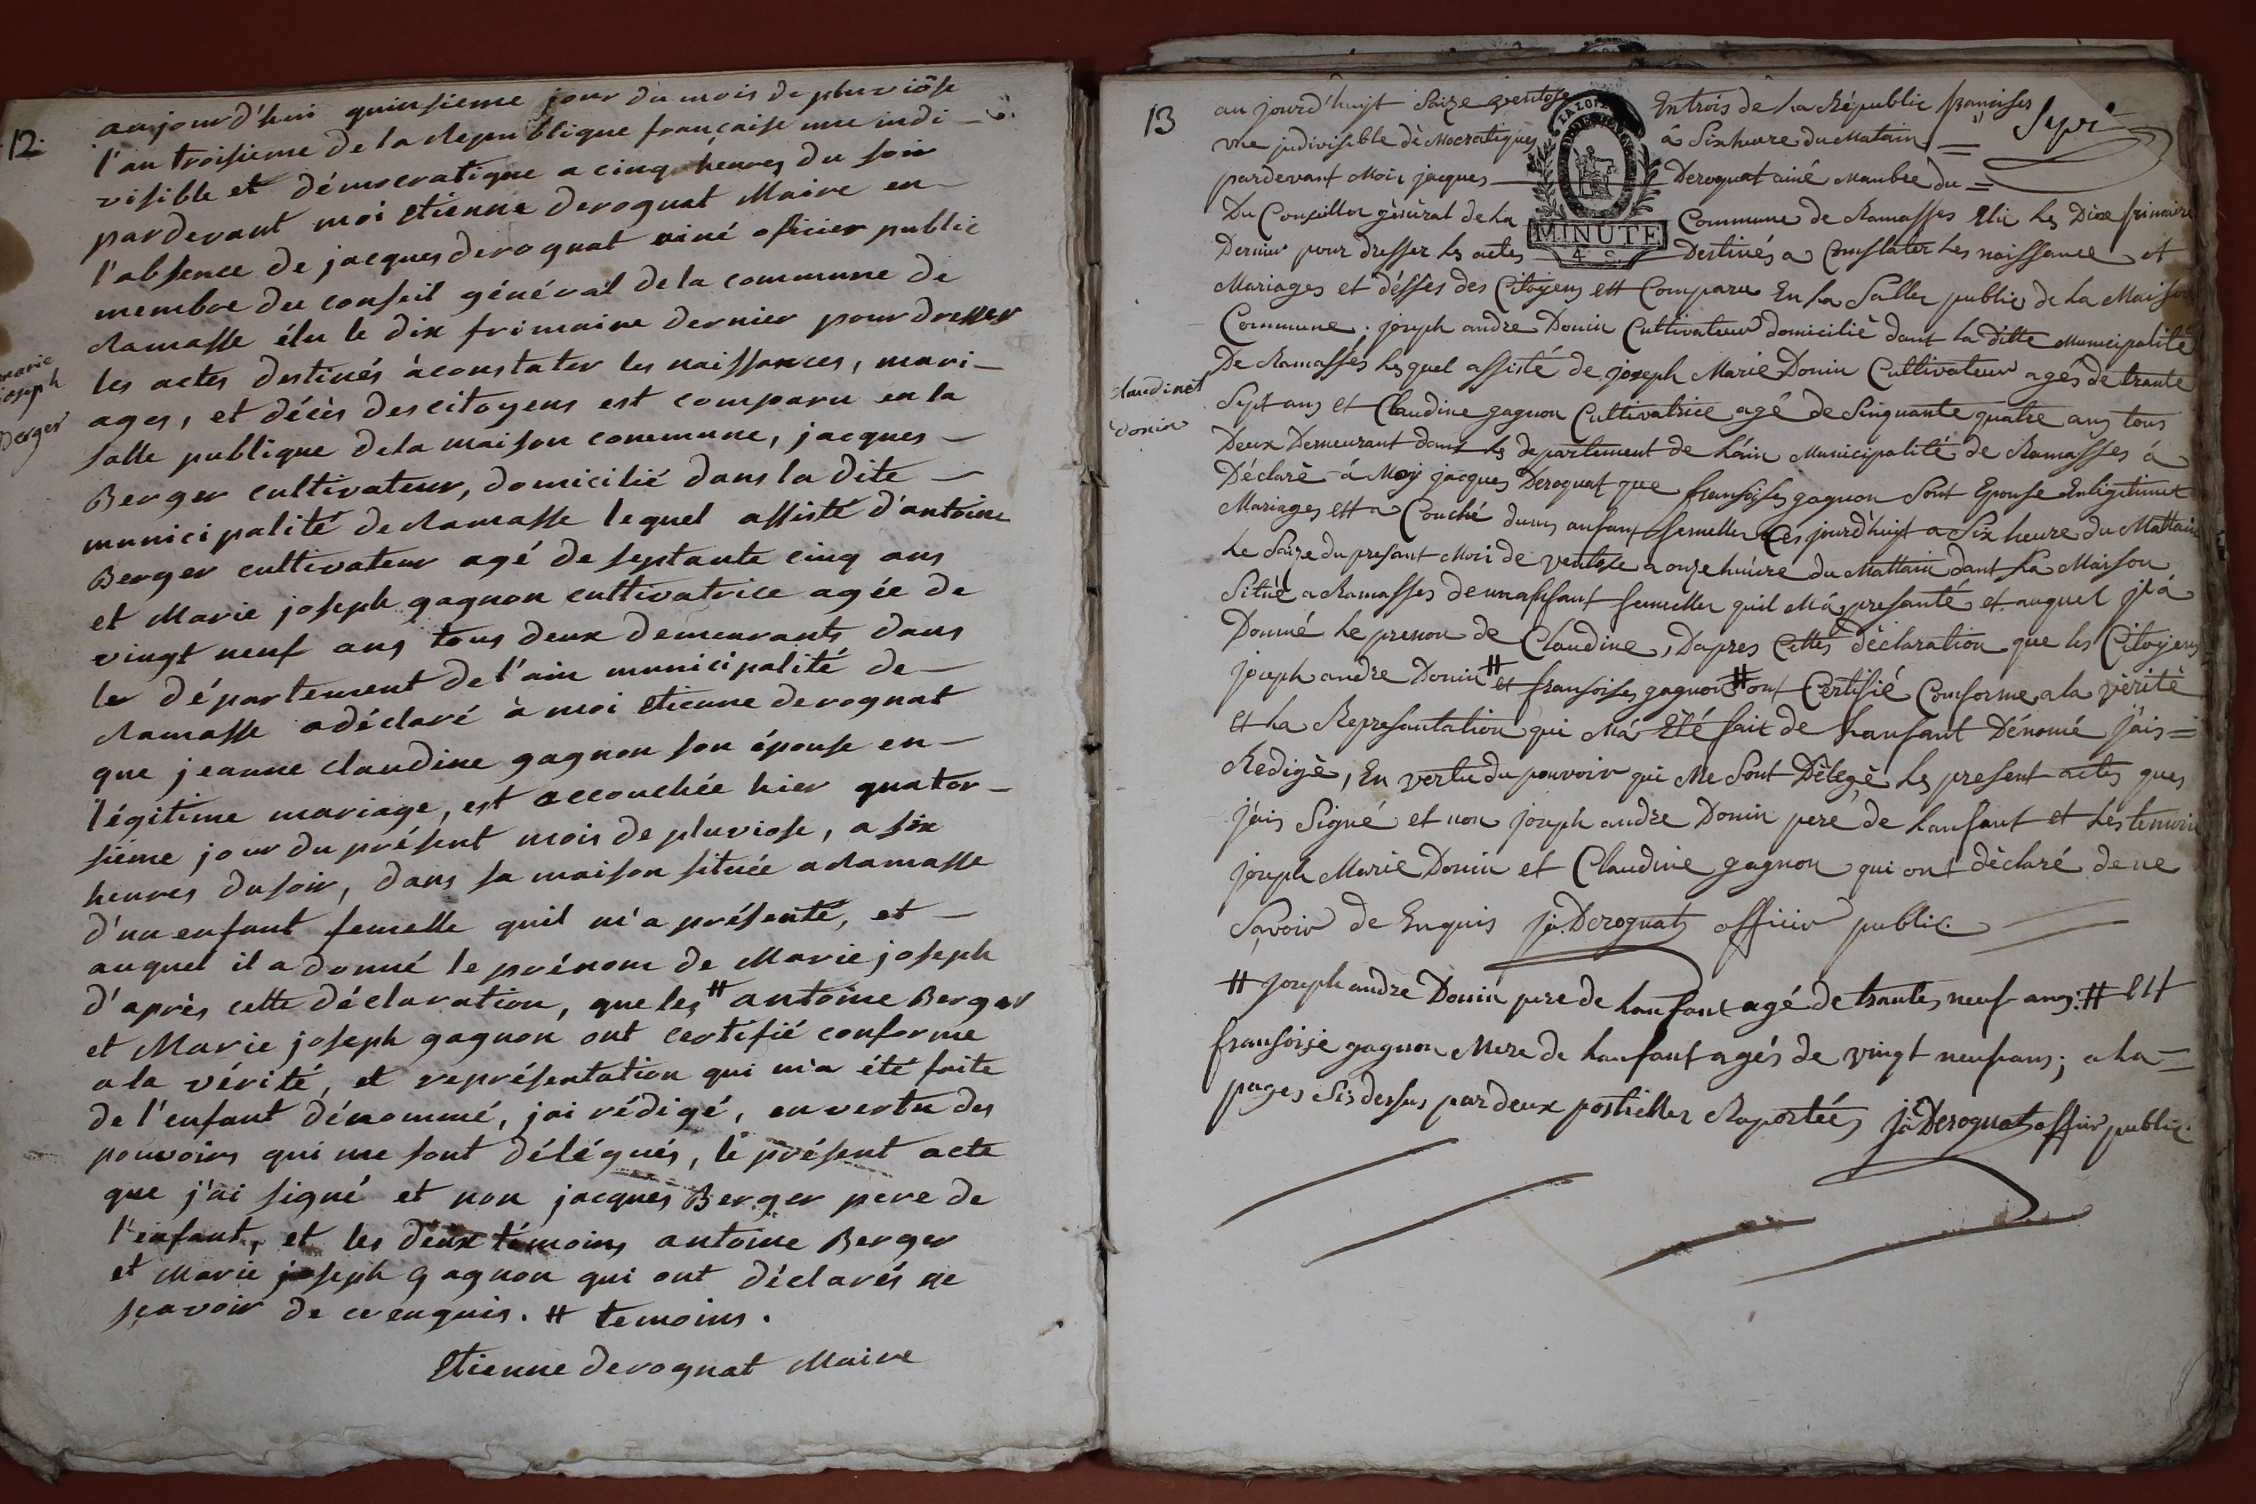 12.
aujourd'hui quinsieme jour du mois de pluviôse
l'an troisieme de la Republique française une indi-
visible et démocratique a cinq heures du soir
pardevant moi etienne derognat Maire en-
l'absence de jacques derognat ainé oficier public
membre du conseil général de la commune de
Ramasse élu le dix frimaire dernier pour dresser
les actes destinés à constater les naissances, mari-
ages, et décès des citoyens est comparu en la
salle publique de la maison commune, jacques -
Berger cultivateur, domicilié dans la dite -
municipalité de Ramasse lequel assisté d'antoine
Berger cultivateur agé de septante cinq ans
et Marie joseph gagnon cultivatrice agée de
vingt neuf ans tous deux demeurants dans
le département de l'ain municipalité de -
Ramasse a déclaré à moi etienne derognat
que jeanne claudine gagnon son épouse en-
légitime mariage, est accouchée hier quator-
sieme jour du présent mois de pluviose, a six
heures du soir, dans sa maison située a Ramasse
d'un enfant femelle quil m'a présenté, et -
auquel il a donné le prénom de Marie joseph
d'après cette déclaration, que les # antoine Berger
et Marie joseph gagnon ont certifié conforme
a la vérité, et représentation qui m'a été faite
de l'enfant dénommé, j'ai rédigé, en vertu des
pouvoirs qui me sont délégués, le présent acte
que j'ai signé et non jacques Berger pere de
l'enfant, et les deux témoins antoine Berger
et Marie joseph gagnon qui ont déclarés ne
sçavoir de ce enquis. # temoins.
Etienne derognat Maire
marie
joseph
Berger
13
au jourd'huyt Saize ventose Entrois de la Républic franoises
vne jndivisible dèMocratiques à Six heure du Matain
pardevant Moi jacques Derognat ainé Manbre du =
Du Conseiller gènèral de la Commune de Ramasses Elu les Dixe frimaire
Dernier pour dresser les actes Destinés a Constater les naissance et
Mariages et désses des Citoyens ett Comparu En la Salle public de la Maison
Commune. joseph andre Donin Cultivateur domiciliè dant la ditte Municipalité
De Ramasses lesquel assisté de joseph Marie Donin Cultivateur agés de trante
Sept ans et Claudine gagnon Cultivatrice agé de Sinquante quatre ans tous
Deux Demeurant dant les departement de l'ain Municipalité de Ramasses à
Déclaré à Moy jacques Derognat que fransoises gagnon Sont Epouse Enligitimes
Mariages ett a Couché dunes anfant femelle Ces jourd'huyt a Six heure du Mattain
le Saize du presant Moi de ventose a onze heure du Mattain dant la Maison
Situè a Ramasses de unanfant femelle quil M'a presanté et auquel jl à
Donné le prenon de Claudine, Dapres Cettes déclaration que les Citoyens
joseph andre Donin # et fransoises gagnon # ont Certifié Conforme a la vèritè
et la Represantation qui M'a Été fait de lanfant Dénomé j'ais =
Redigè, En vertu du pouvoir qui Me Sont Dèlegè les present actes ques
j'ais Signé et non joseph andre Donin pere de lanfant et les temoin
joseph Marie Donin et Claudine gagnon qui ont dèclaré de ne
Savoir de Enquis jà. Derognat officier public.
# joseph andre Donin pere de lanfant agé de trantes neuf ans. # ett
fransoise gagnon Mere de lanfant agés de vingt neuf ans; a la =
pages Sis dessus par deux postielles Raportées jà Derognat officier public.
Claudines
Donin
LA LOI
MINUTE
4 S.